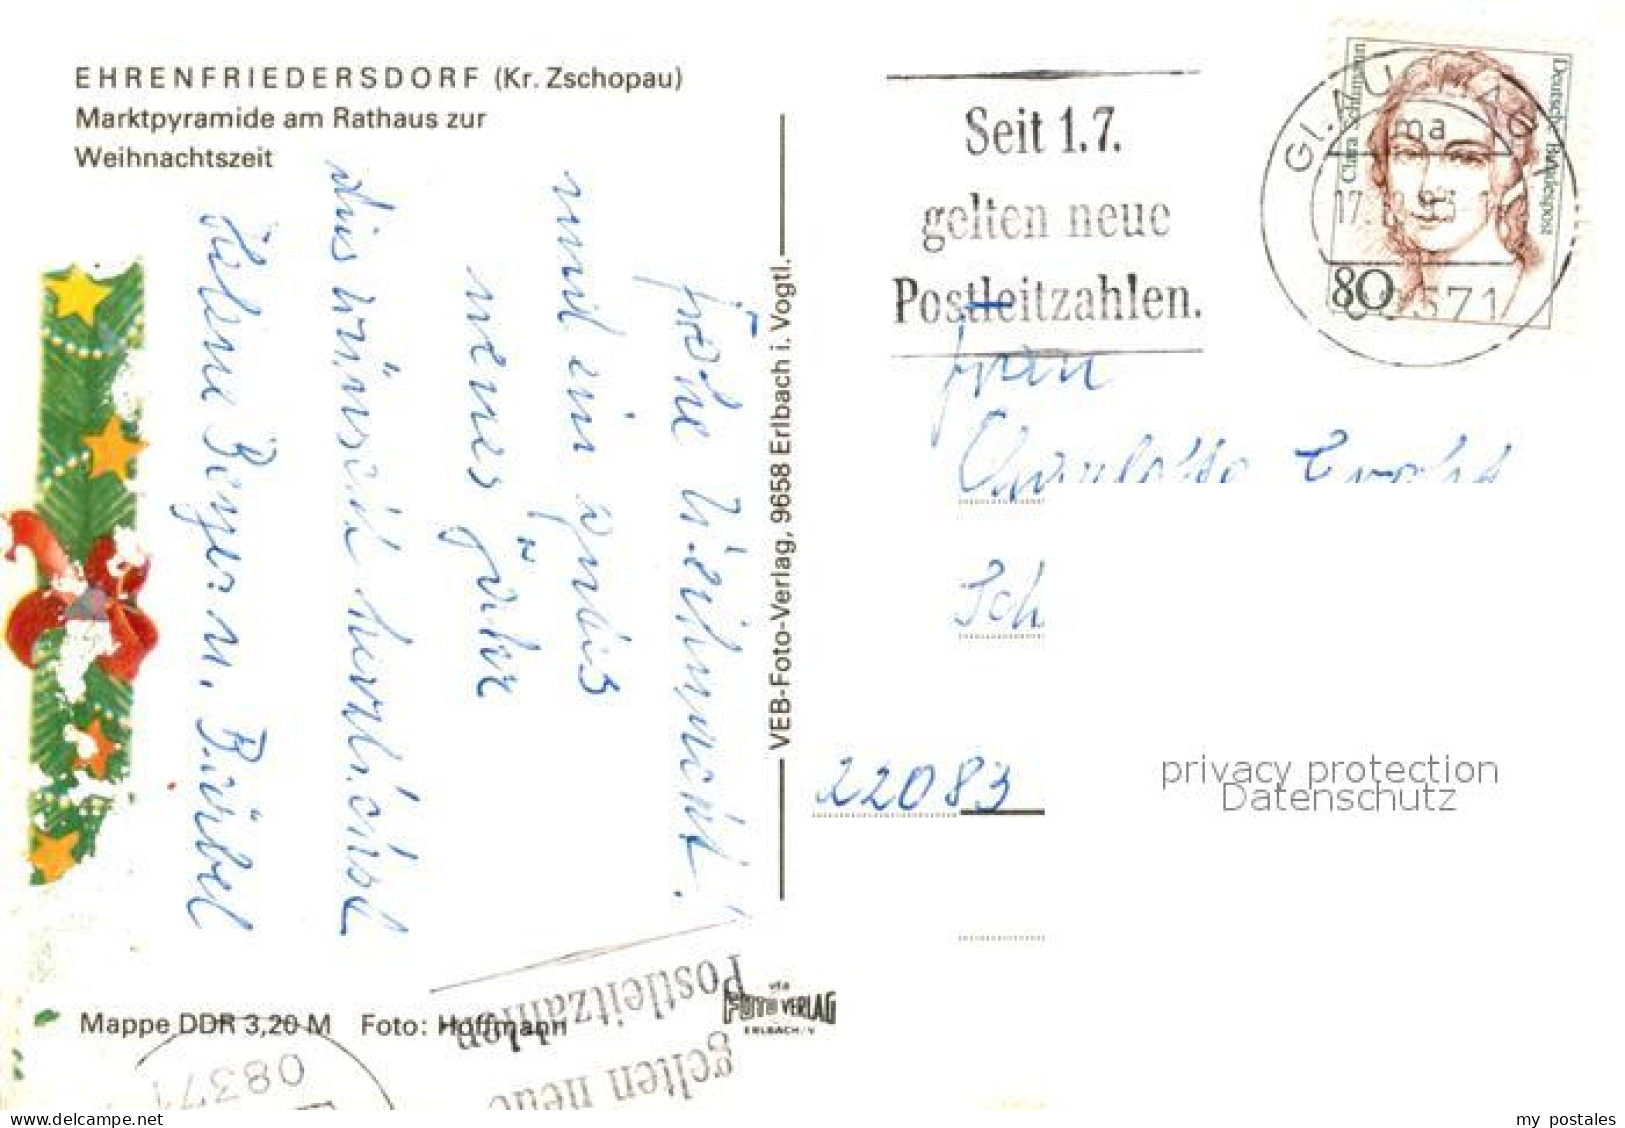 EHRENFRIEDERSDORF (Kr. Zschopau)
Marktpyramide am Rathaus zur
Weihnachtszeit
Frohe Weihnacht!
und ein gutes
neues Jahr
dies wünscht herzlichst
Helene Beyer u. Bärbel
VEB-Foto-Verlag, 9658 Erlbach i. Vogtl.
Mappe DDR 3,20 M Foto: Hoffmann
VEB
FOTO VERLAG
ERLBACH/V
Postleitzahlen
gelten neue
08371
Seit 1.7.
gelten neue
Postleitzahlen.
Clara Schumann
Deutsche Bundespost
80
ma
Frau
Charlotte
Sch
22083
privacy protection
Datenschutz
www.delcampe.net
my_postales